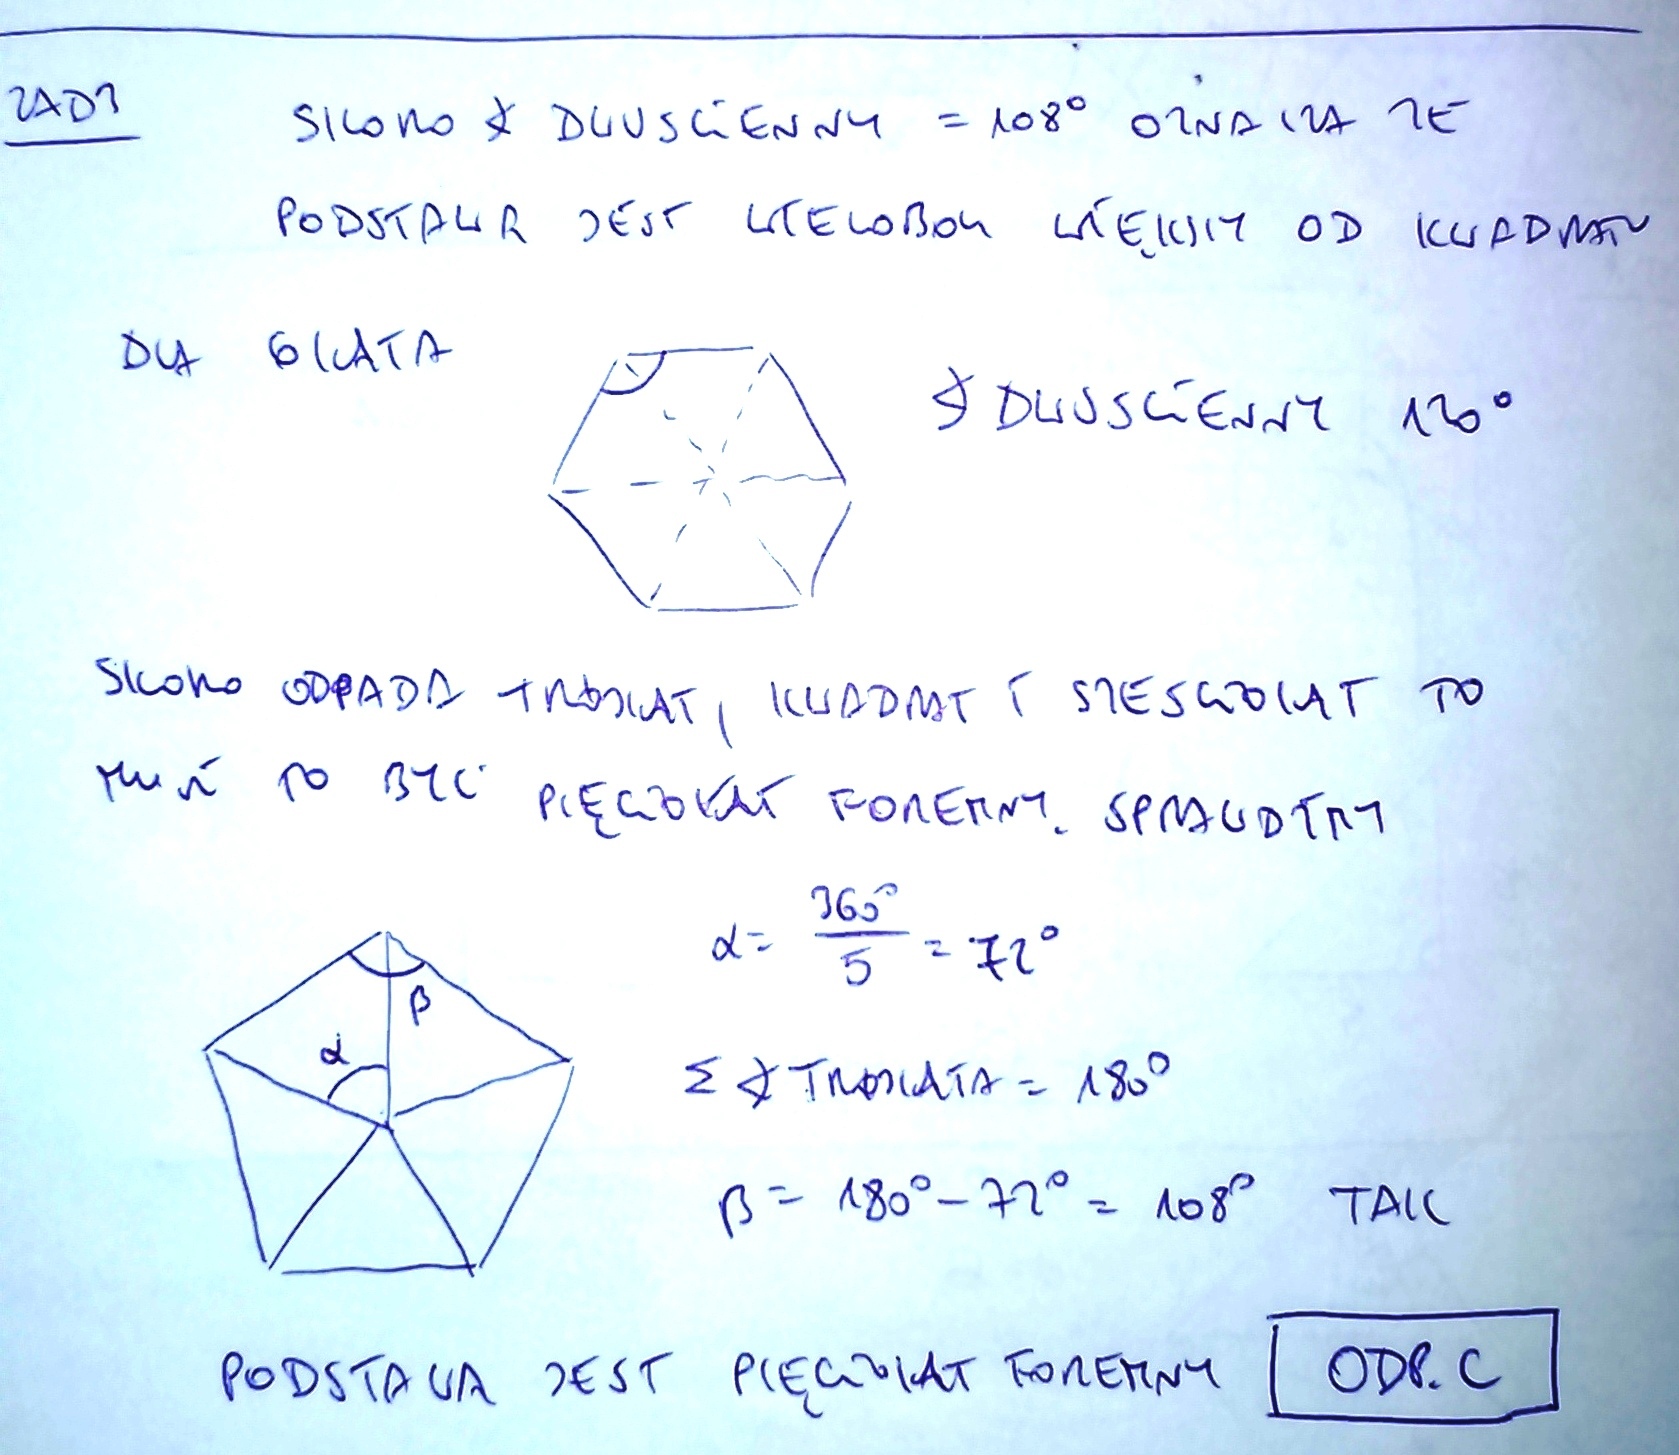 ZAD3
SKORO ∢ DWUSCIENNY = 108° OZNACZA ŻE
PODSTAWĄ JEST WIELOBOK WIĘKSZY OD KWADRATU
DLA 6KĄTA
∢ DWUSCIENNY 120°
SKORO ODPADA TRÓJKĄT, KWADRAT I SZESCIOKĄT TO
MUSI TO BYĆ PIĘCIOKĄT FOREMNY. SPRAWDZMY
α = 360° / 5 = 72°
β
α
Σ ∢ TRÓJKĄTA = 180°
β = 180° - 72° = 108° TAK
PODSTAWA JEST PIĘCIOKĄT FOREMNY ODP. C